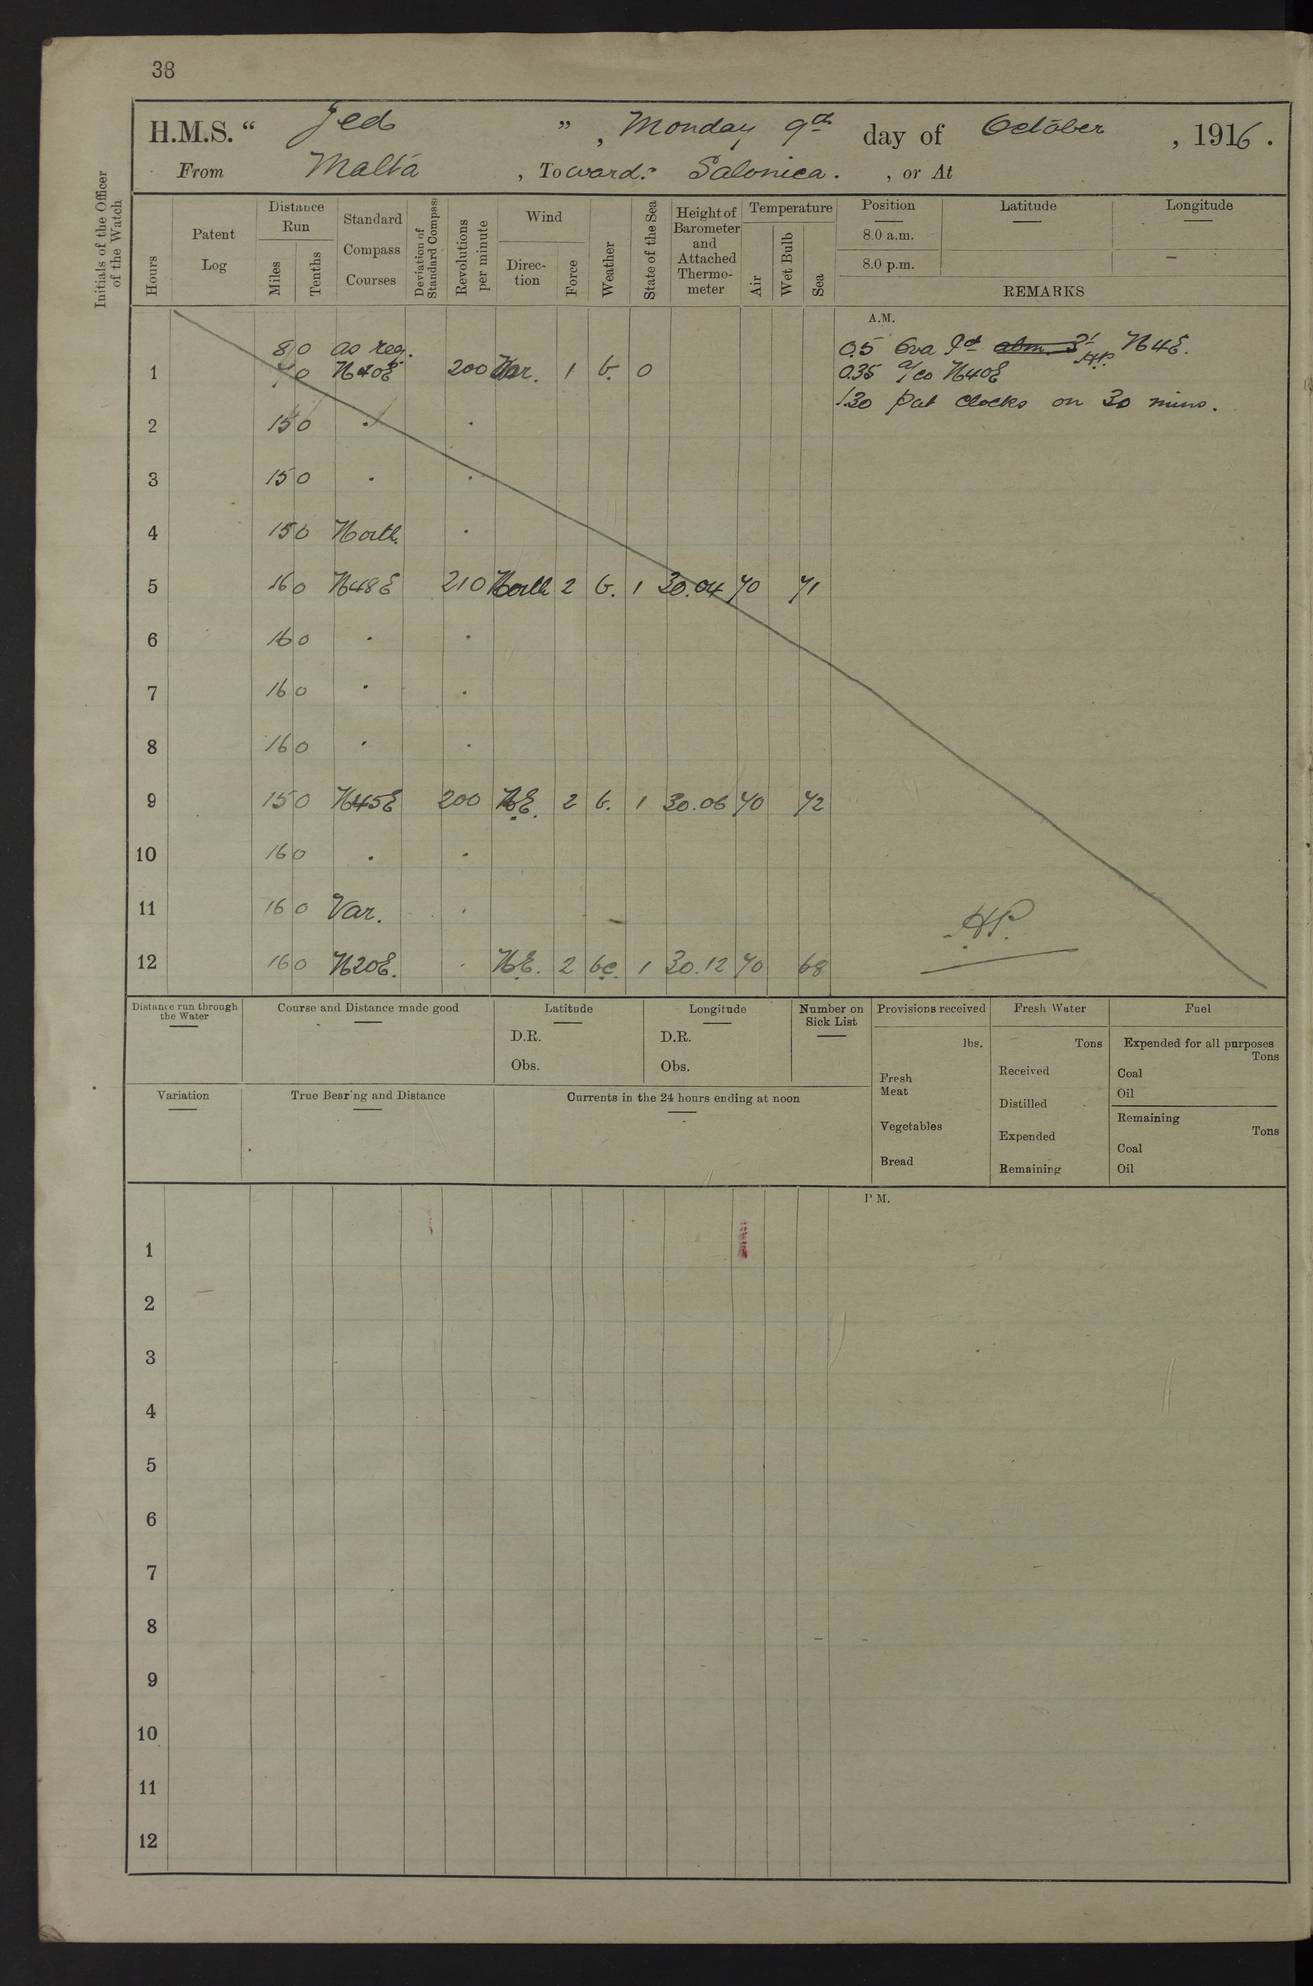 38
H.M.S. “ Jed ” , Monday 9th day of October , 1916 .
From Malta , Towards Salonica . , or At
Initials of the Officer of the Watch
Hours
Patent Log
Distance Run
Miles Tenths
Standard Compass Courses
Deviation of Standard Compass
Revolutions per minute
Wind
Direction Force
Weather
State of the Sea
Height of Barometer and Attached Thermometer
Temperature
Air Wet Bulb Sea
Position Latitude Longitude
8.0 a.m.
8.0 p.m.
REMARKS
A.M.
8 0 as req.
1 7 0 N40E 200 Var. 1 b. 0
0.5 Eva Id N4E.
0.35 a/co N40E H.P.
1.30 Put clocks on 30 mins.
2 15 0 . .
3 15 0 . .
4 15 0 North .
5 16 0 N48E 210 North 2 b. 1 30.04 70 71
6 16 0 . .
7 16 0 . .
8 16 0 . .
9 15 0 N45E 200 N.E. 2 b. 1 30.06 70 72
10 16 0 . .
11 16 0 Var. .
H.P.
12 16 0 N20E. . N.E. 2 bc. 1 30.12 70 68
Distance run through the Water
Course and Distance made good
Latitude
D.R.
Obs.
Longitude
D.R.
Obs.
Number on Sick List
Provisions received
lbs.
Fresh Meat
Vegetables
Bread
Fresh Water
Tons
Received
Distilled
Expended
Remaining
Fuel
Expended for all purposes
Tons
Coal
Oil
Remaining
Tons
Coal
Oil
Variation
True Bearing and Distance
Currents in the 24 hours ending at noon
P M.
1
2
3
4
5
6
7
8
9
10
11
12